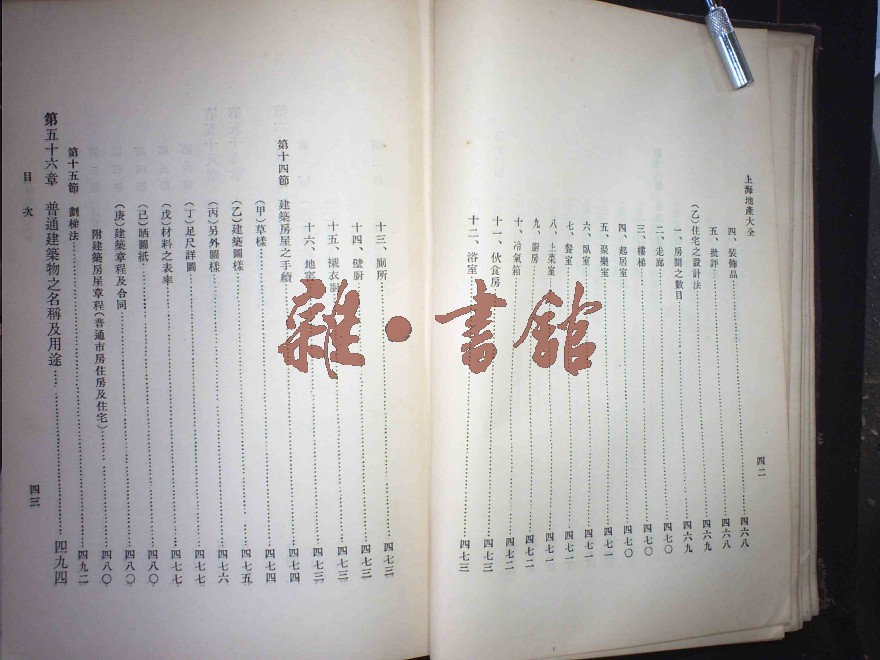 上海地產大全
四二
四、裝飾品 四六八
五、批評 四六八
(乙)住宅之設計法 四六九
一、房間之數目 四六九
二、走廊 四七〇
三、樓梯 四七〇
四、起居室 四七〇
五、聚樂室 四七一
六、臥室 四七一
七、餐室 四七一
八、上菜室 四七一
九、廚房 四七二
十、冷氣箱 四七二
十一、伙食房 四七三
十二、浴室 四七三
十三、廁所 四七三
十四、壁廚 四七三
十五、襯衣廚 四七三
十六、地窖 四七三
第十四節 建築房屋之手續 四七四
(甲)草樣 四七四
(乙)建築圖樣 四七五
(丙)另外圖樣 四七六
(丁)足尺詳圖 四七七
(戊)材料之表率 四七七
(己)晒圖紙 四八〇
(庚)建築章程及合同 四八〇
附建築房屋章程(普通市房住房及住宅) 四八〇
第十五節 劃梯法 四九二
第五十六章 普通建築物之名稱及用途 四九四
目次
四三
雜·書館